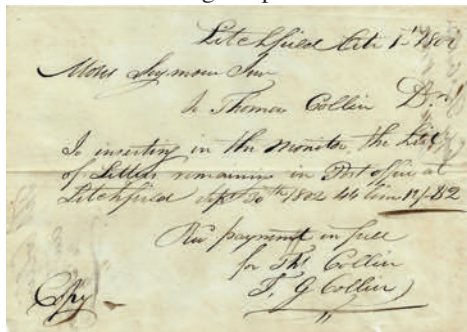 Litchfield Octr 1st 1802
Moses Seymour Junr
To Thomas Collier Dr
To inserting in the Monitor the List
of Letters remaining in Post office at
Litchfield Sept 30th 1802 44 lines
Recd payment in full
for Thos Collier
T. G. Collier
Copy